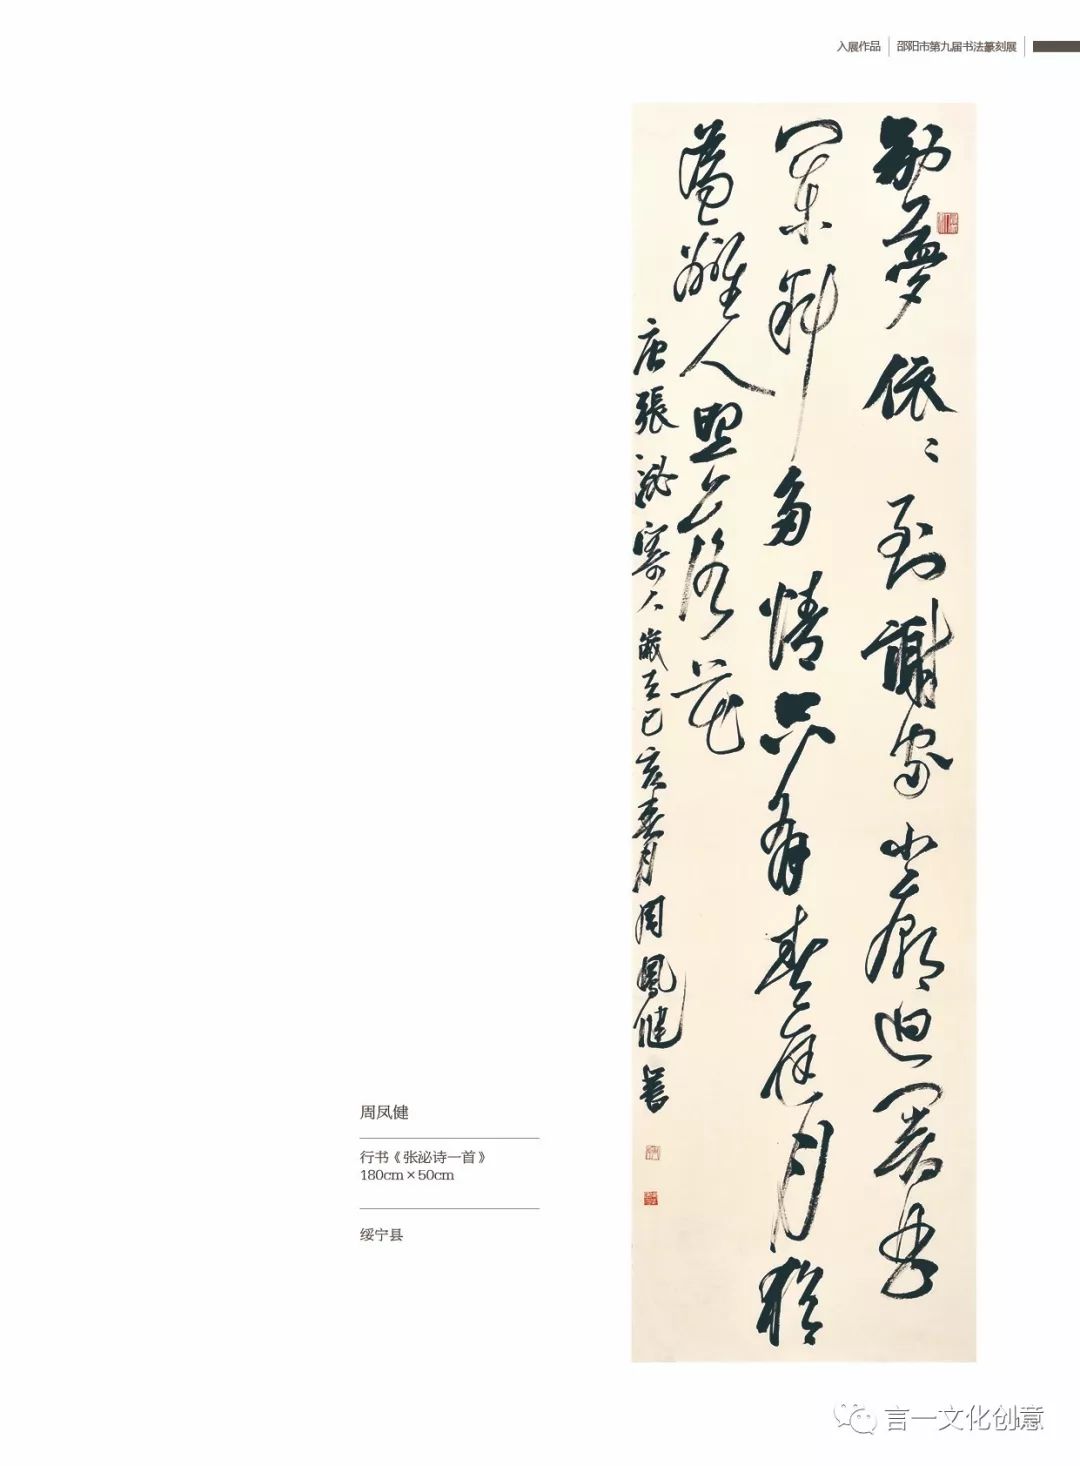 入展作品 邵阳市第九届书法篆刻展
別夢依〻到謝家小廊迴闔曲
闌斜多情只有春庭月猶
為離人照落花
唐張泌寄人歲在己亥春月周鳳健書
周凤健
行书《张祕诗一首》
180cm×50cm
绥宁县
言一文化创意